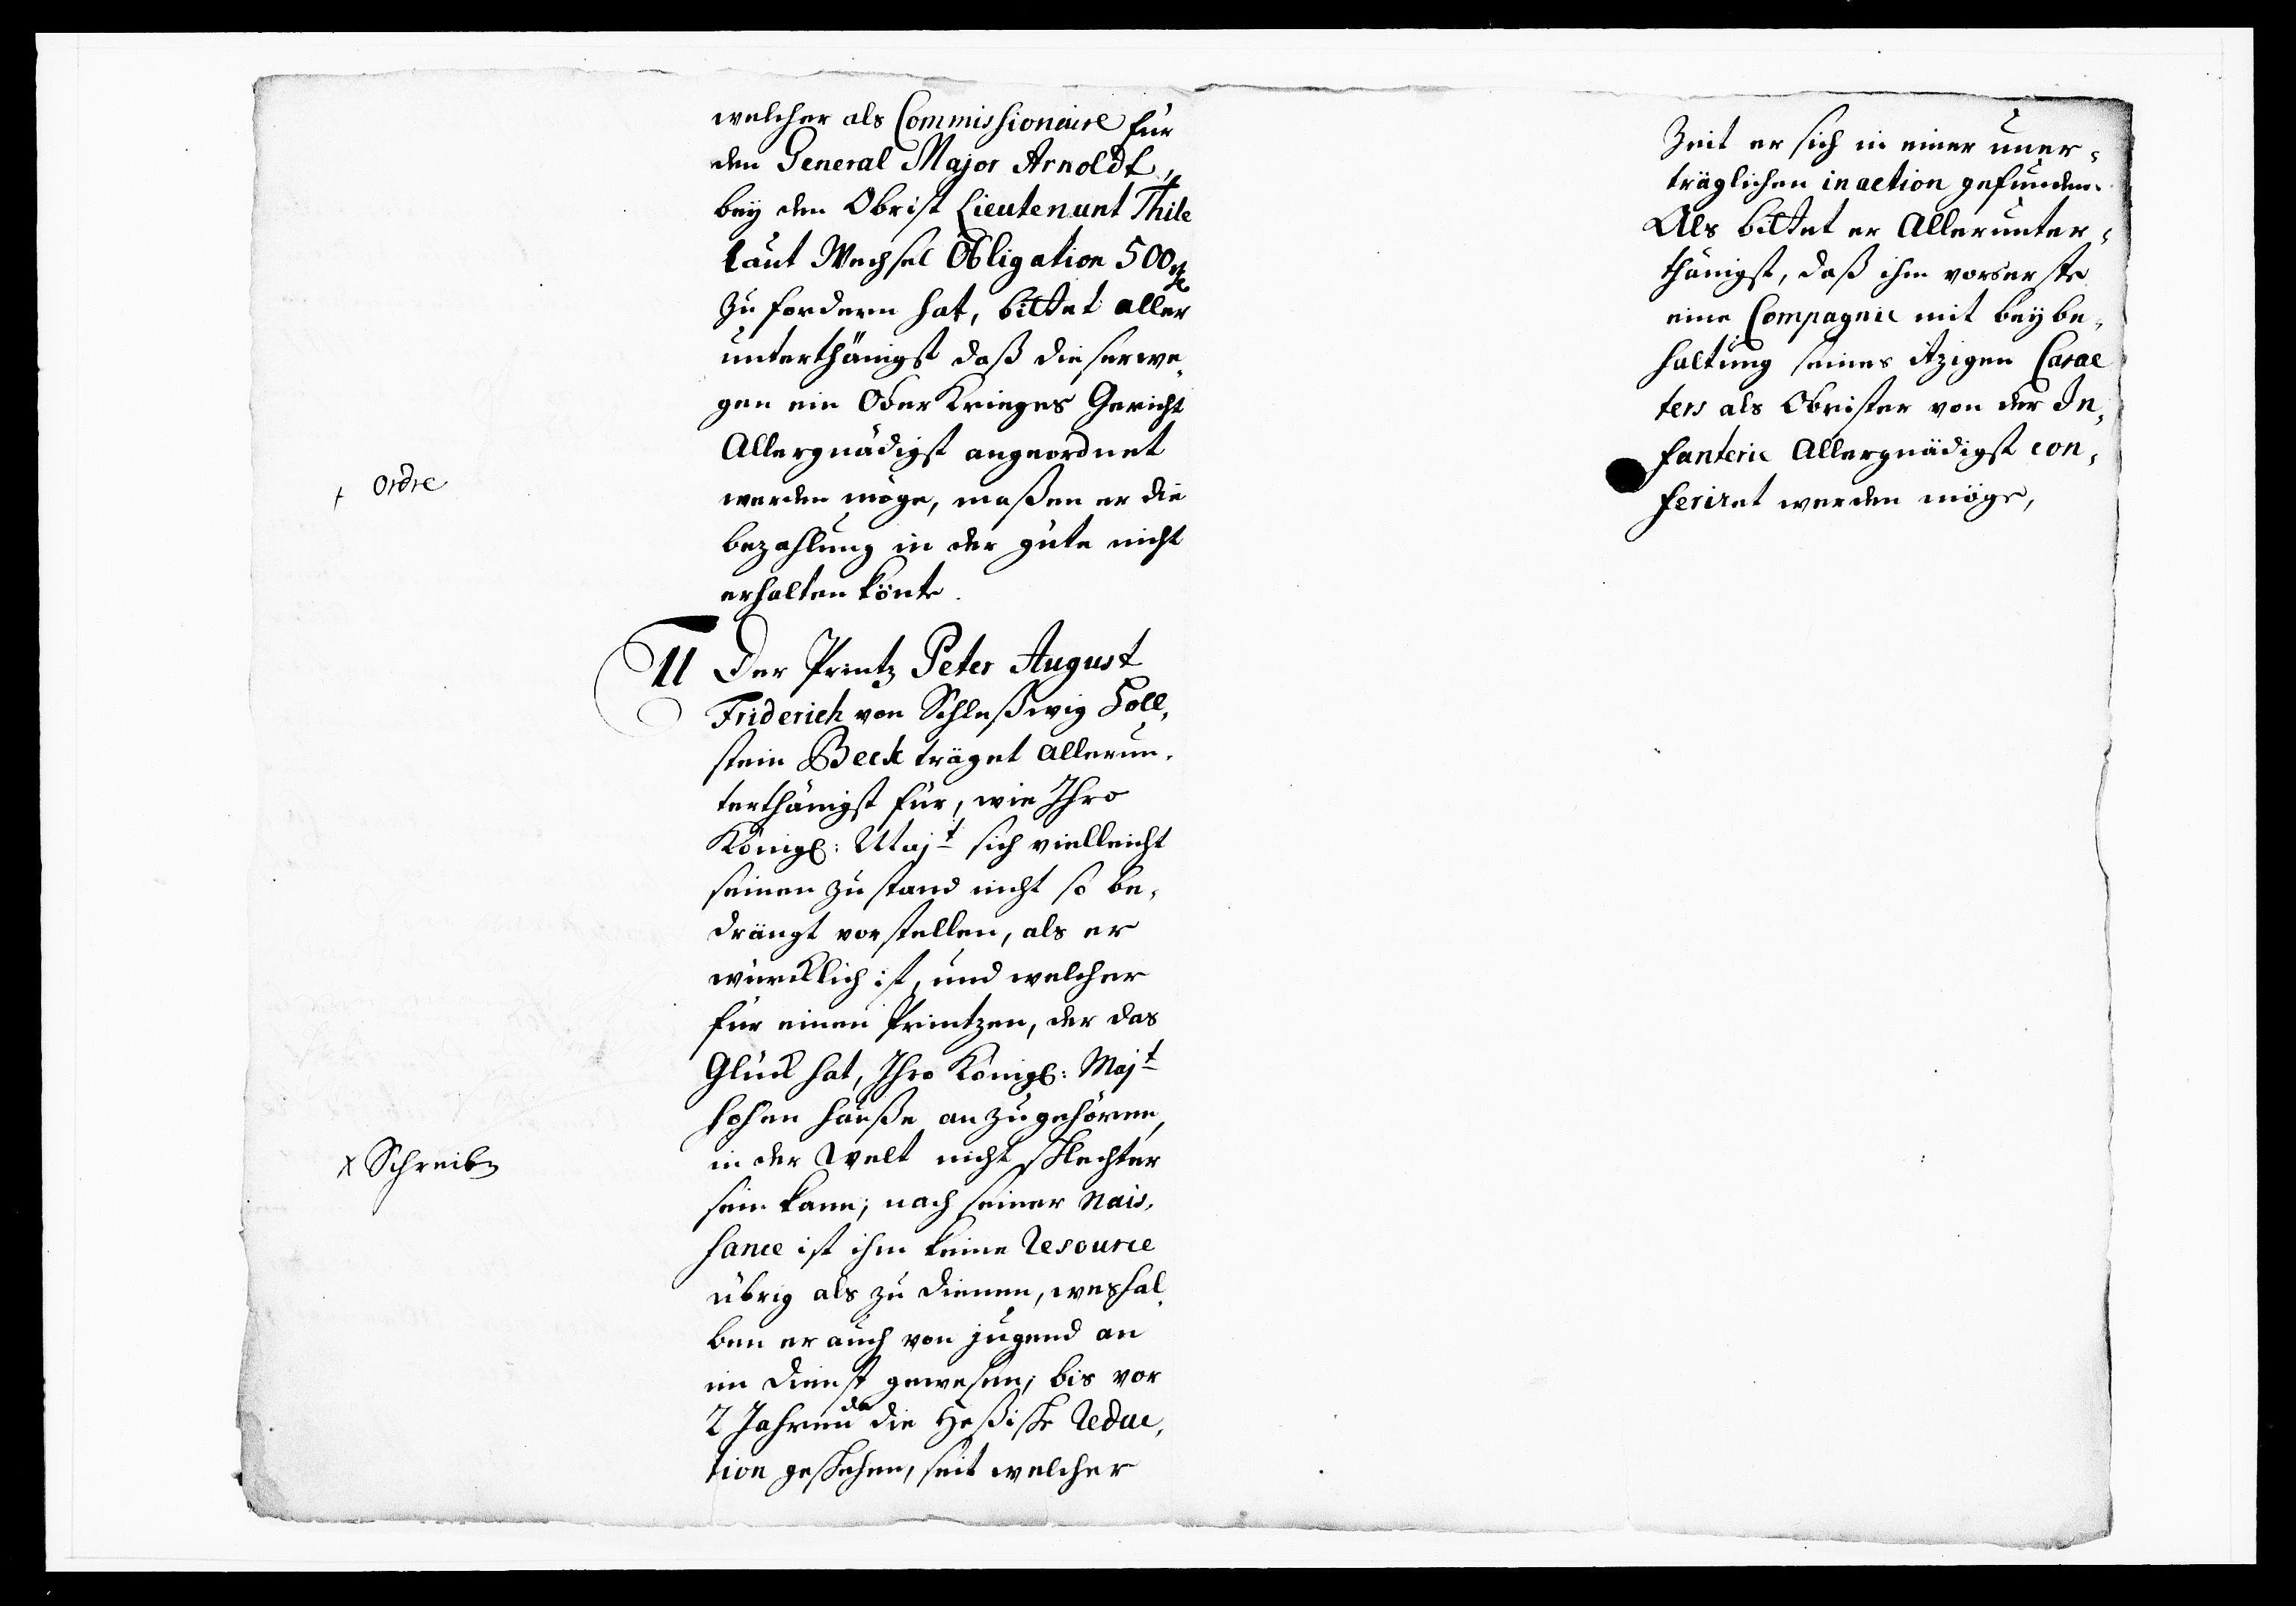 welcher als Commissionaire für
den General Major Arnoldt,
bey den Obrist Lieutenant Thile
laut Wechsel Obligation 500 rthl
zu fordern hat, bittet aller
unterthänigst daß dieserwe,
gen ein Ober Krieges Gericht
Allergnädigst angeordnet
+ Ordre
werden möge, maßen er die
bezahlung in der güte nicht
erhalten könte.
11 Der Printz Peter August
Friderich von Schleßwig Holl,
stein Beck träget allerun,
terthänigst für, wie Ihro
Königl: Majt sich vielleicht
seinen zustand nicht so be,
drängt vorstellen, als er
würcklich ist, und welcher
für einen Printzen, der das
Glück hat, Ihro Königl: Majt
hohen hauße anzugehören,
x Schreiben
in der Welt nicht schlechter
sein kann; nach seiner Nais,
sance ist ihm keine Resource
übrig als zu dienen, weshal,
ben er auch von jugend an
im dienst gewesen; bis vor
2 Jahren da die Heßische Reduc,
tion geschehen, seit welcher
Zeit er sich in einer uner,
träglichen inaction gefunden.
Als bittet er Allerunter,
thänigst, daß ihm vorserste
eine Compagnie mit beybe,
haltung seines itzigen Carac
ters als Obrister von der In,
fanterie Allergnädigst con,
feriret werden möge,